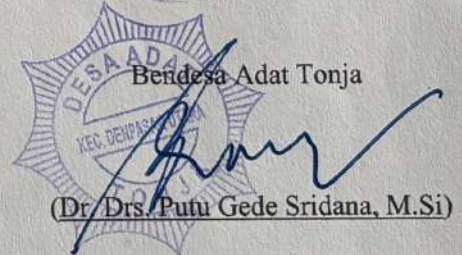 DESA ADAT
Bendesa Adat Tonja
KEC. DENPASAR UTARA
TONJA
(Dr. Drs. Putu Gede Sridana, M.Si)